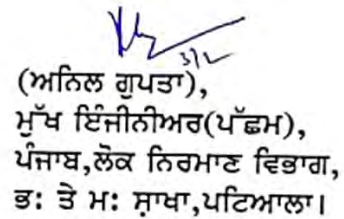 3/2
(ਅਨਿਲ ਗੁਪਤਾ),
ਮੁੱਖ ਇੰਜੀਨੀਅਰ(ਪੱਛਮ),
ਪੰਜਾਬ,ਲੋਕ ਨਿਰਮਾਣ ਵਿਭਾਗ,
ਭ: ਤੇ ਮ: ਸ਼ਾਖਾ,ਪਟਿਆਲਾ।